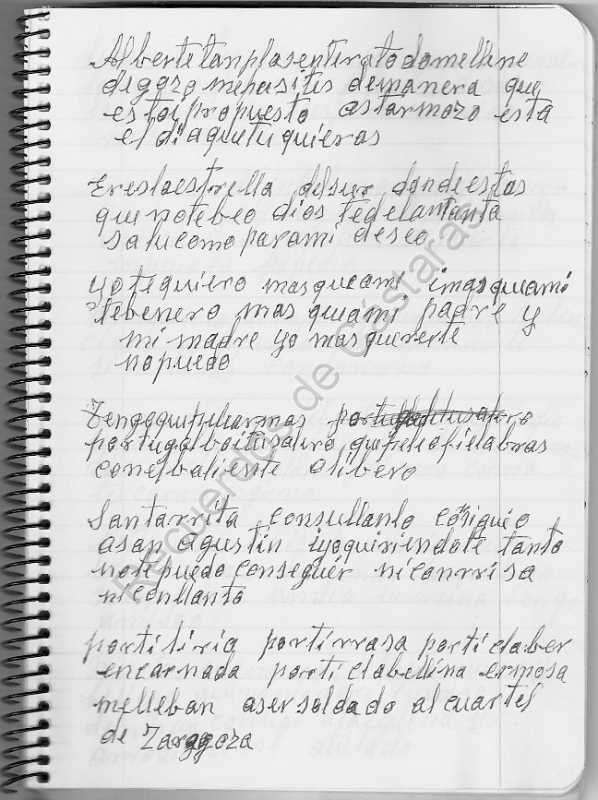 Albertetanplasentiratodomellene
degozo mehasites demanera que
estoi propuesto astarmozo esta
el diaquetuquieras
Ereslaestrella delsur dondeestas
quenotebeo dios tedelantanta
salucomo parami deseo
yotequiero masqueami imasqueami
tebenero mas queami padre y
mi madre yo mas quererte
nopuedo
Tengoque
con
baliente alibero
Santarrita consullanto consiguio
asan agustin iyoquiriendote tanto
notepuedo conseguir niconrrisa
niconllanto
portiliria portirrasa porticlaber
encarnada porticlabellina ermosa
melleban asersoldado alcuartel
de Zaragoza
Recuerdos de Cástaras